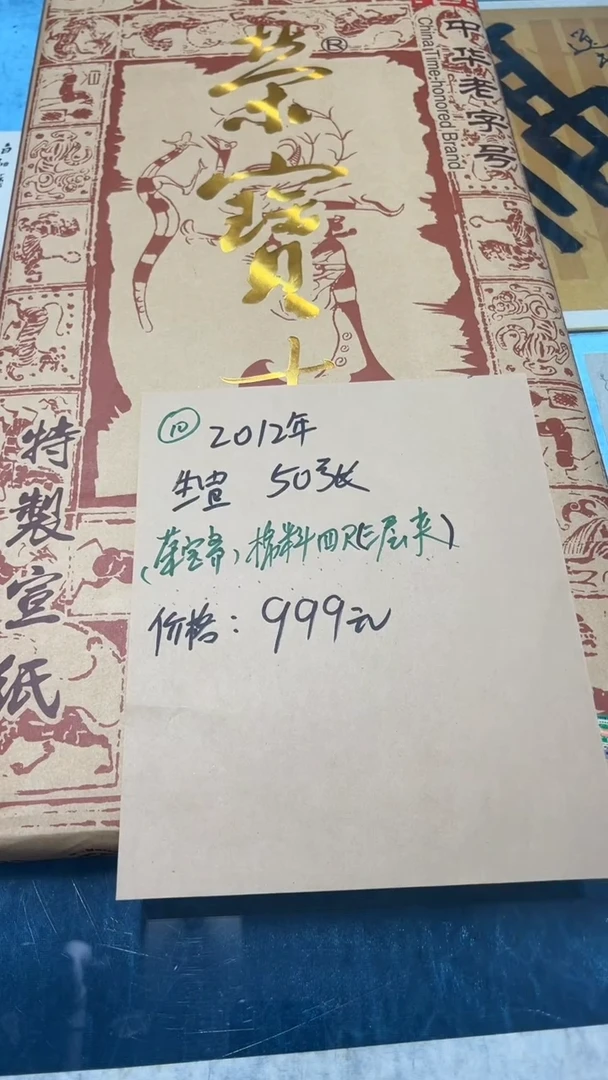 榮寶
®
中华老字号
China Time-honored Brand
特製宣紙
⑩ 2012年
生宣 50张
(荣宝斋) 棉料四尺(二层夹)
价格：999元